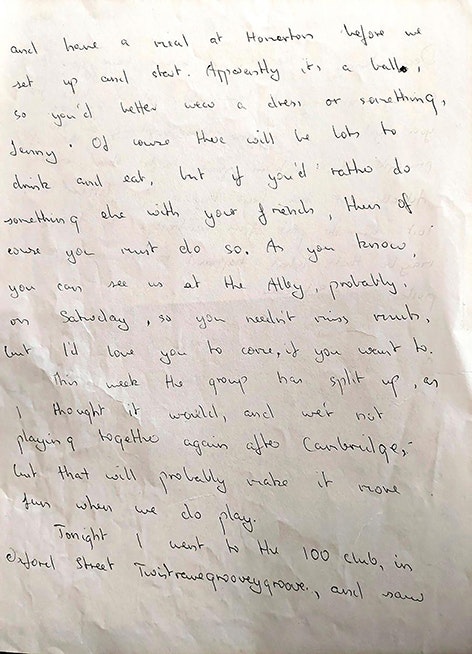 and have a meal at Homerton before we
set up and start. Apparently its a ball,
so you'd better wear a dress or something,
Jenny. Of course there will be lots to
drink and eat, but if you'd rather do
something else with your friends, then of
course you must do so. As you know,
you can see us at the Alley, probably.
on Saturday, so you needn't miss much,
but I'd love you to come, if you want to.
This week the group has split up, as
I thought it would, and we're not
playing together again after Cambridge,
but that will probably make it more
fun when we do play.
Tonight I went to the 100 club, in
Oxford Street and saw